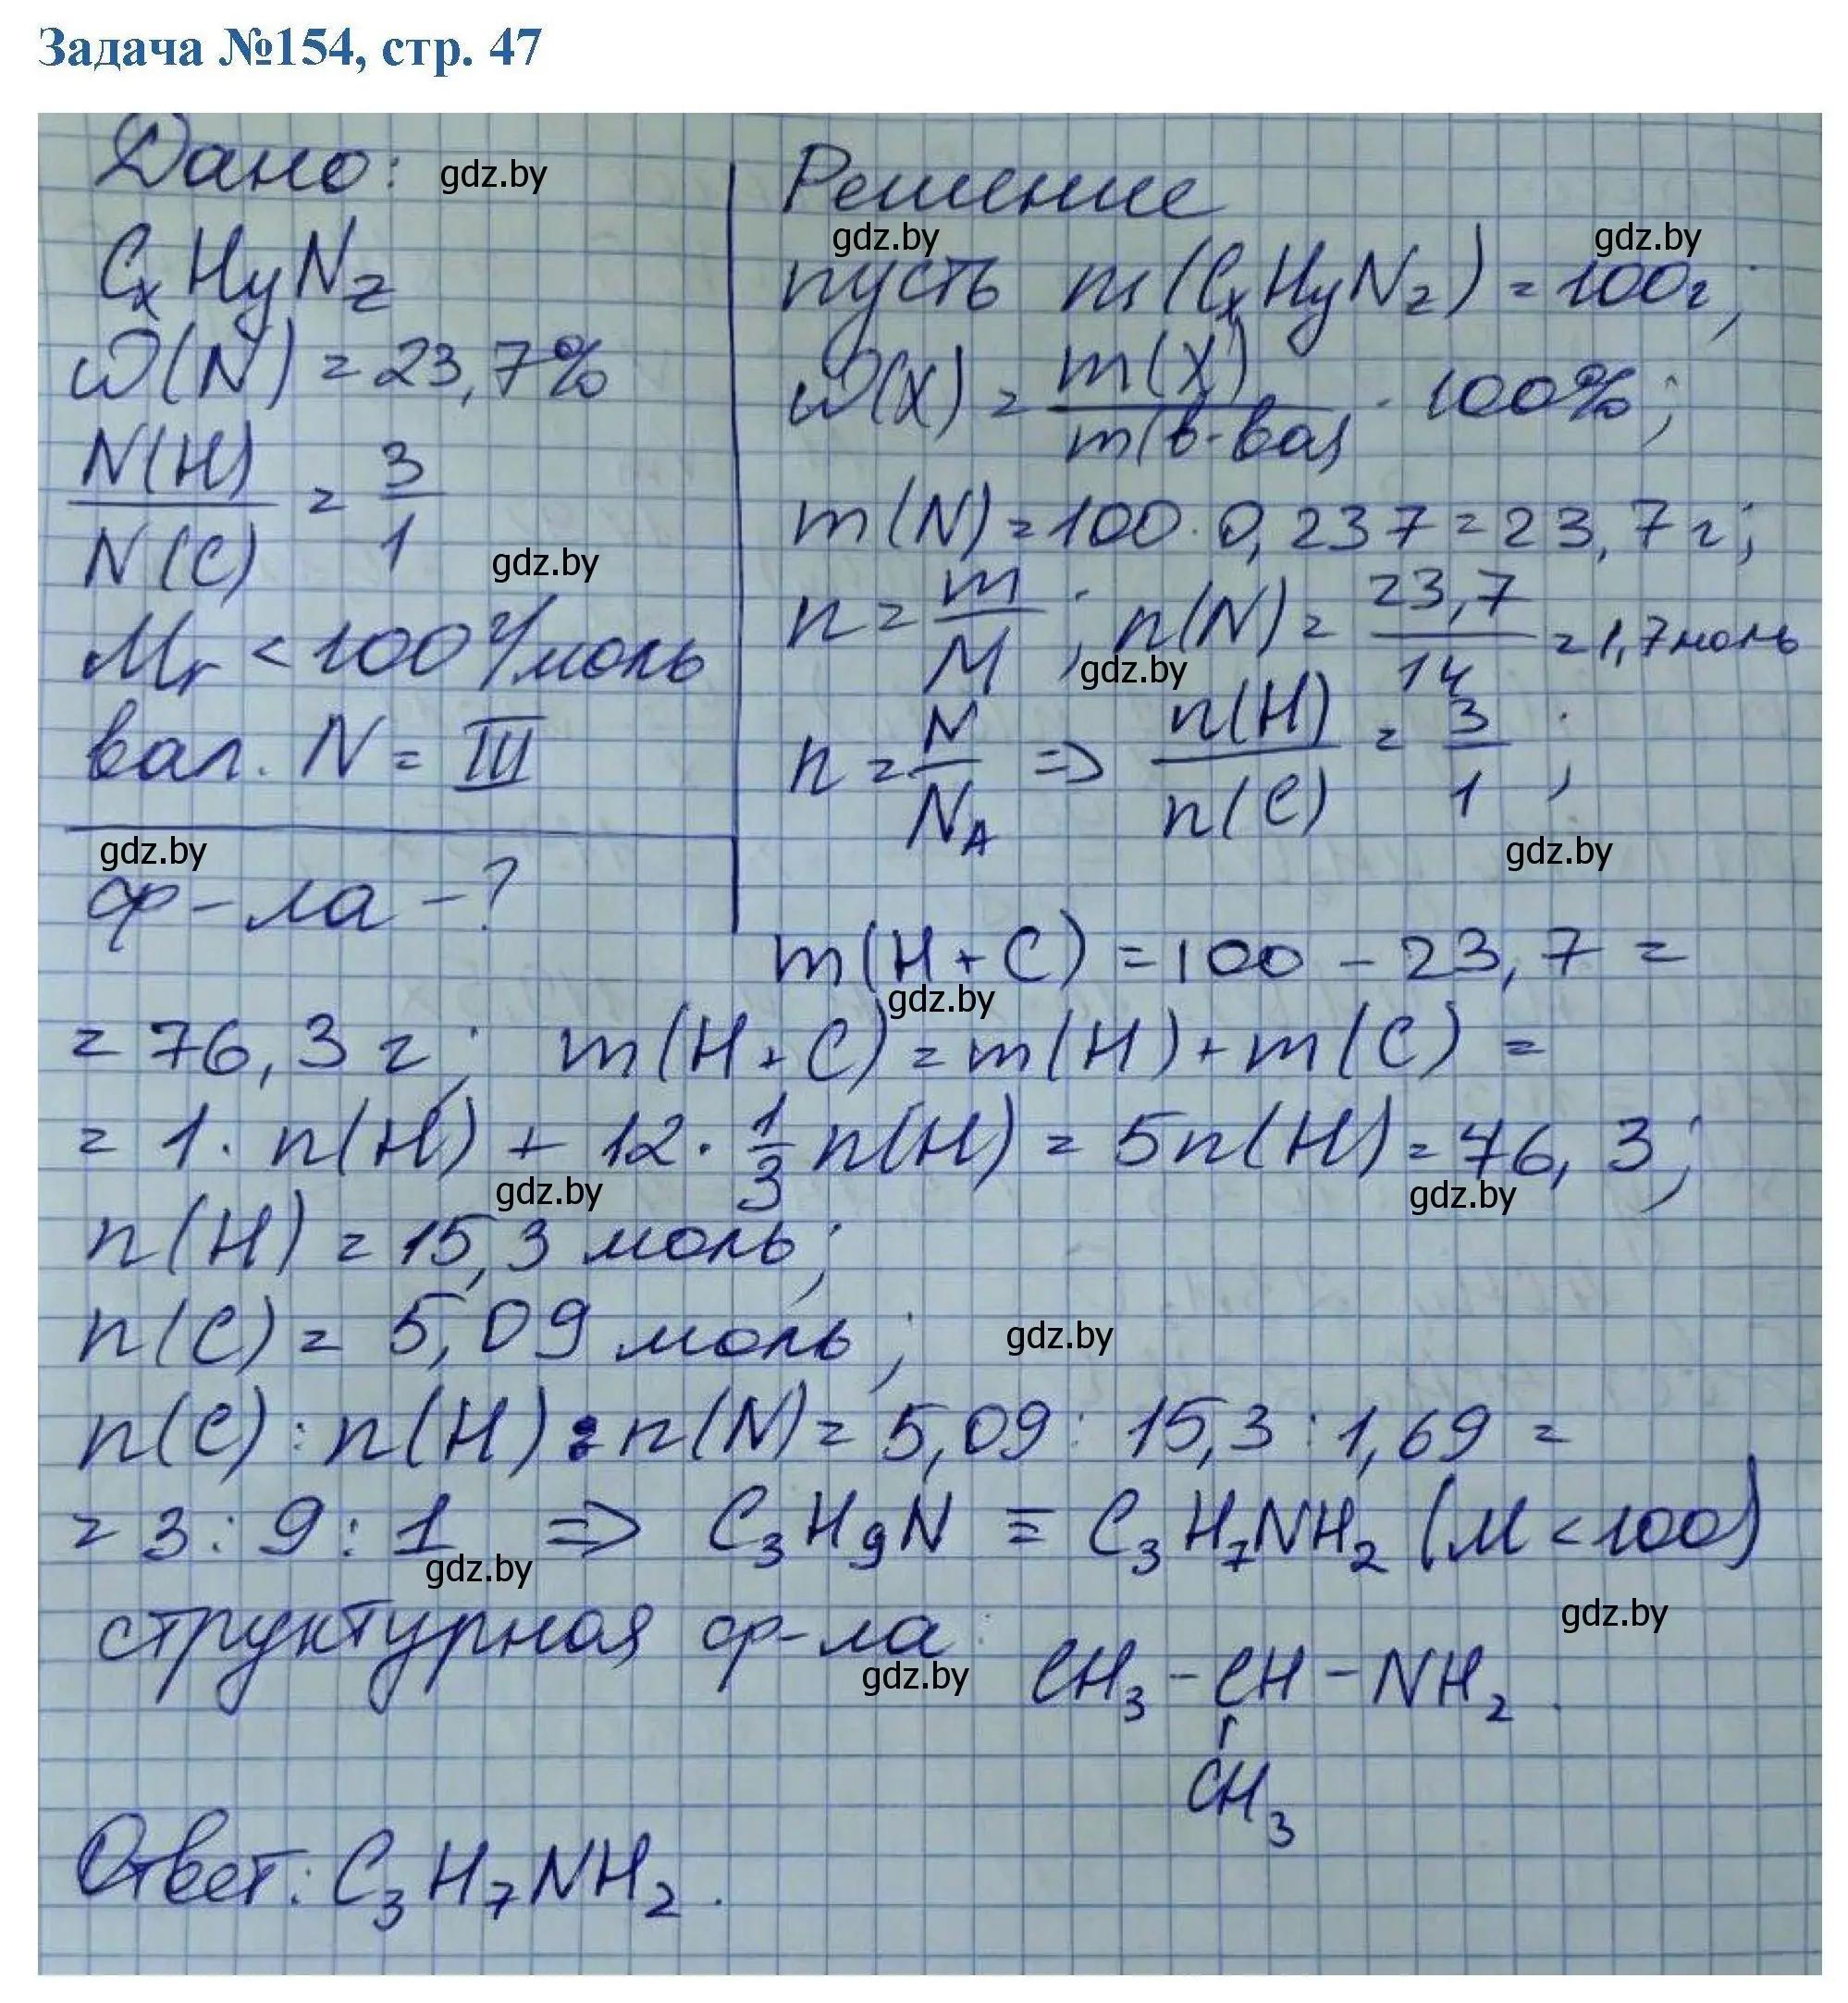 Задача №154, стр. 47
Дано: gdz.by
CxHyNz
ω(N) = 23,7%
N(H)/N(C) = 3/1
gdz.by
Mr < 100 г/моль
вал. N = III
gdz.by
ф-ла - ?
Решение
gdz.by gdz.by
пусть m(CxHyNz) = 100г;
ω(X) = m(X)/m(в-ва) · 100%;
m(N) = 100 · 0,237 = 23,7 г;
n = m/M; n(N) = 23,7/14 = 1,7 моль
gdz.by
n = N/NA => n(H)/n(C) = 3/1;
gdz.by
m(H+C) = 100 - 23,7 =
gdz.by
= 76,3 г; m(H+C) = m(H) + m(C) =
= 1 · n(H) + 12 · 1/3 n(H) = 5n(H) = 76,3;
gdz.by gdz.by
n(H) = 15,3 моль;
n(C) = 5,09 моль;
gdz.by
n(C) : n(H) : n(N) = 5,09 : 15,3 : 1,69 =
= 3 : 9 : 1 => C3H9N ≡ C3H7NH2 (M < 100)
gdz.by gdz.by
структурная ф-ла: CH3 - CH - NH2.
gdz.by
CH3
Ответ: C3H7NH2.